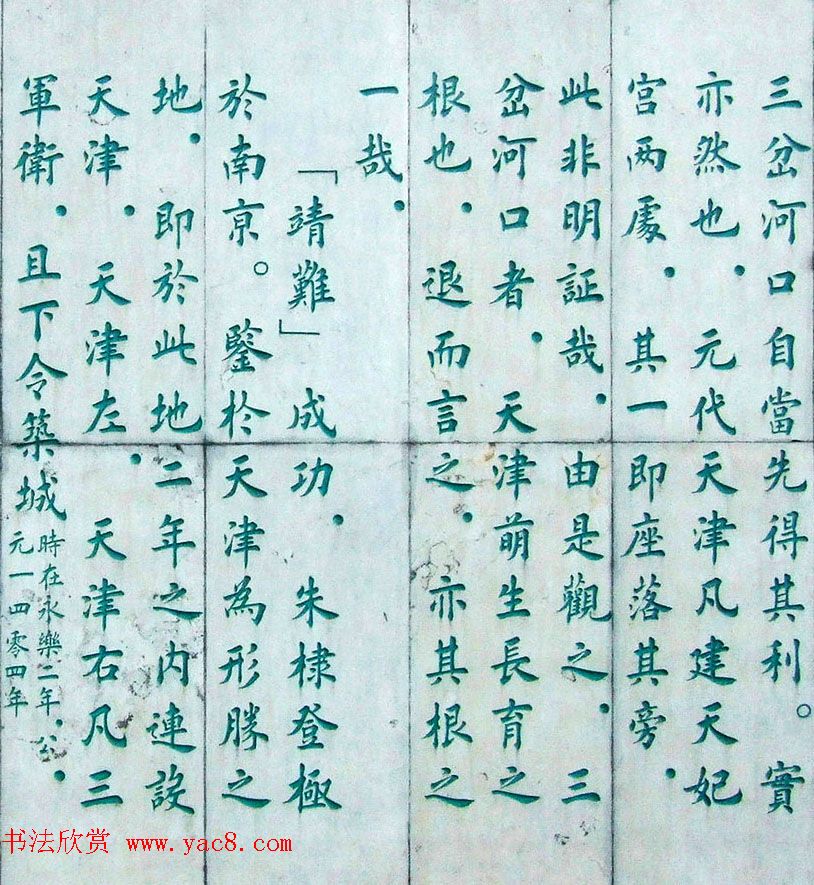 三岔河口自當先得其利。實
亦然也．元代天津凡建天妃
宮两處．其一即座落其旁．
此非明証哉．由是觀之．三
岔河口者．天津萌生長育之
根也．退而言之．亦其根之
一哉．
「靖難」成功．朱棣登極
於南京。鑒於天津為形勝之
地．即於此地二年之内連設
天津．天津左．天津右凡三
軍衛．且下令築城
時在永樂二年．公
元一四零四年．
书法欣赏 www.yac8.com